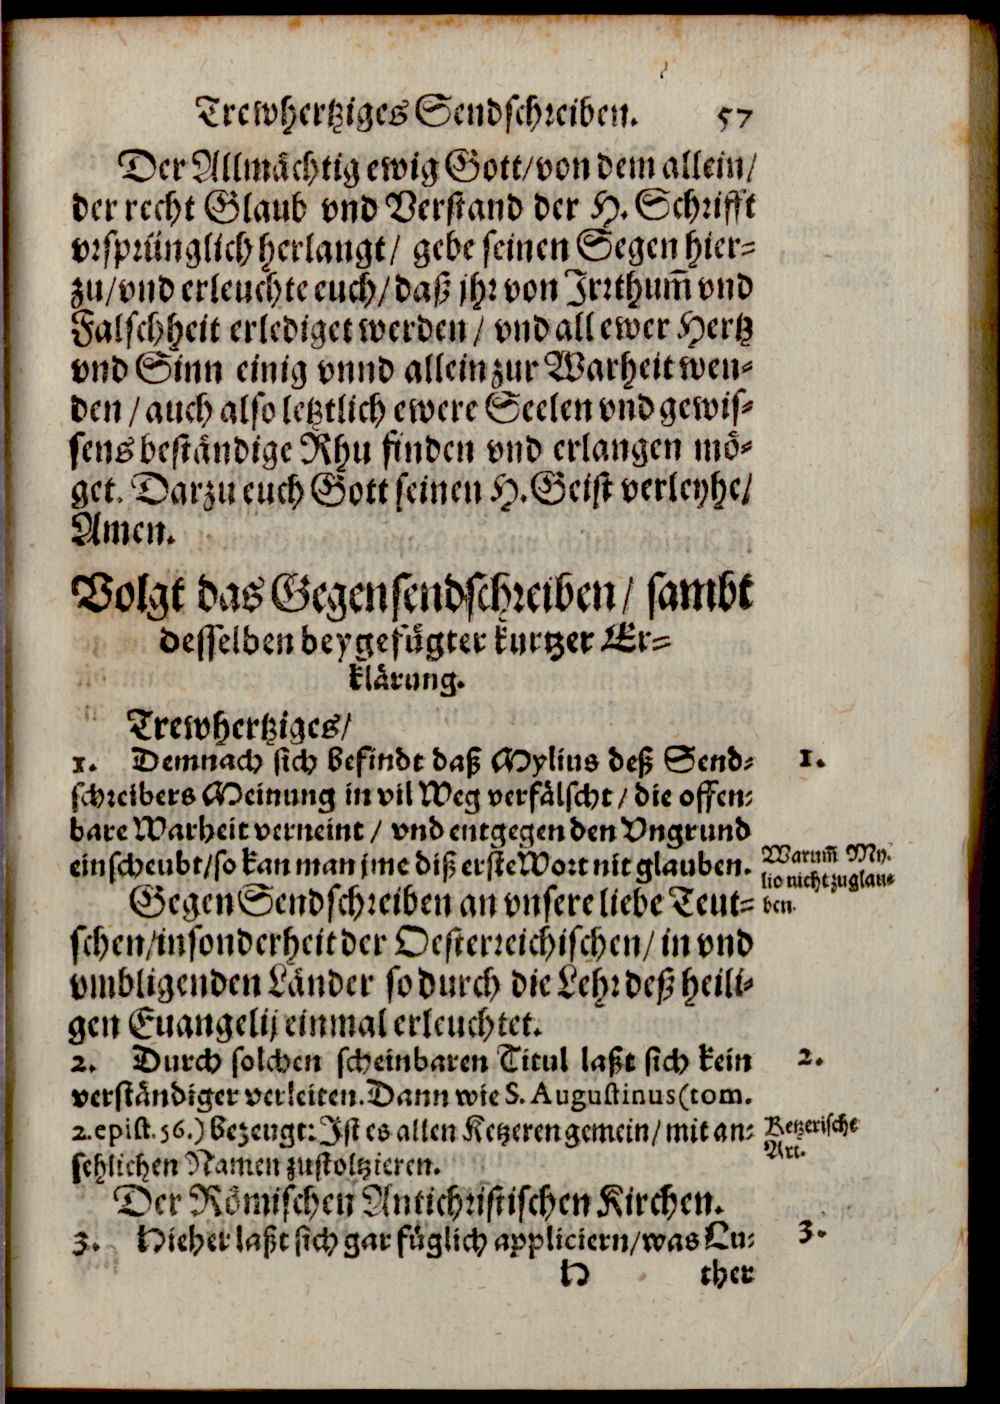 Trewhertziges Sendschreiben. 57
Der Allmächtig ewig Gott/von dem allein/
der recht Glaub vnd Verstand der H. Schrifft
vrsprünglich herlangt/ gebe seinen Segen hier-
zu/vnd erleuchte euch/daß jhr von Irrthum̃ vnd
Falschheit erlediget werden/ vnd all ewer Hertz
vnd Sinn einig vnnd allein zur Warheit wen-
den/auch also letztlich ewere Seelen vnd gewis-
sens beständige Rhu finden vnd erlangen mö-
get. Darzu euch Gott seinen H. Geist verleyhe/
Amen.
Volgt das Gegensendschreiben/ sambt
desselben beygefügter kurtzer Er-
klärung.
Trewhertziges/
1. Demnach sich befindt daß Mylius deß Send- 1.
schreibers Meinung in vil Weg verfälscht/ die offen-
bare Warheit verneint/ vnd entgegen den Vngrund
einscheubt/so kan man jme diß erste Wort nit glauben.
Warum̃ My-
lio nicht zuglau-
ben.
Gegen Sendschreiben an vnsere liebe Teut-
schen/insonderheit der Oesterreichischen/ in vnd
vmbligenden Länder so durch die Lehr deß heili-
gen Euangelij einmal erleuchtet.
2. Durch solchen scheinbaren Titul laßt sich kein 2.
verständiger verleiten. Dann wie S. Augustinus (tom.
2. epist. 56.) bezeugt: Ist es allen Ketzeren gemein/ mit an-
sehlichen Namen zustoltzieren.
Ketzerische
Art.
Der Römischen Antichristischen Kirchen.
3. Hieher laßt sich gar füglich appliciern/was Lu- 3.
H ther